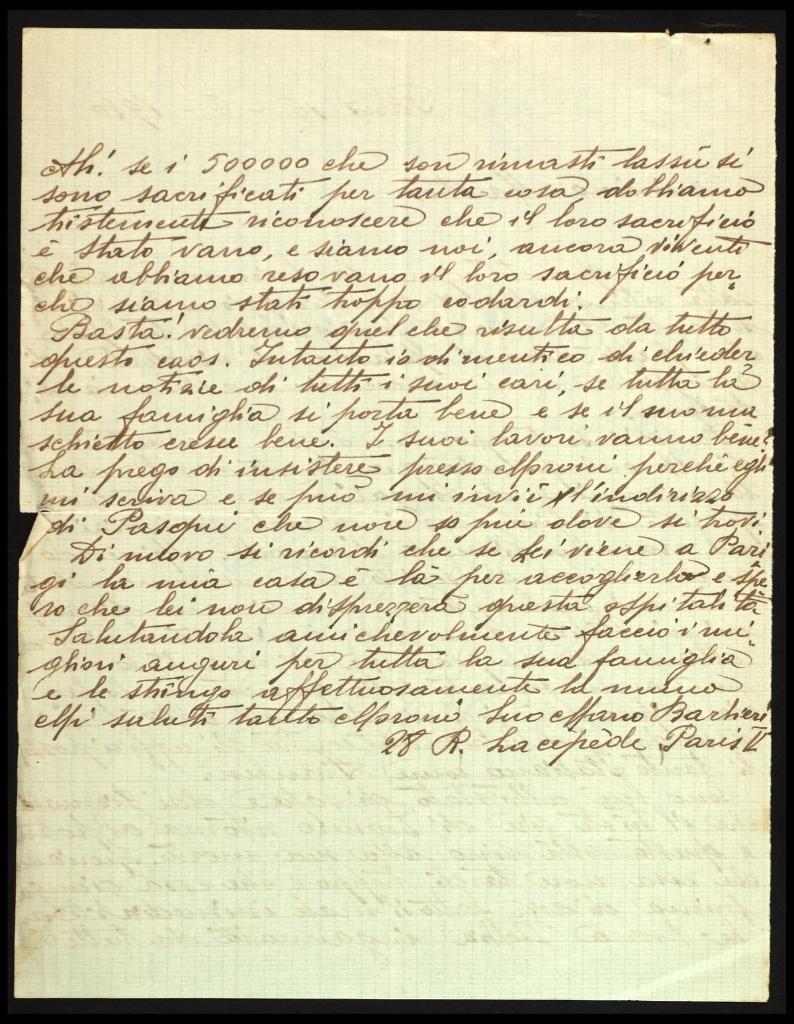 Ah! se i 500000 che son rimasti lassù si
sono sacrificati per tanta cosa, dobbiamo
tristemente riconoscere che il loro sacrificio
è stato vano, e siamo noi, ancora viventi
che abbiamo reso vano il loro sacrificio per-
chè siamo stati troppo codardi.
Basta! vedremo quel che risulta da tutto
questo caos. Intanto io dimentico di chieder
le notizie di tutti i suoi cari, se tutta la
sua famiglia si porta bene e se il suo ma
schietto cresce bene. I suoi lavori vanno bene?
La prego di insistere presso Moroni perchè egli
mi scriva e se può mi invii l'indirizzo
di Pasqui che non so più dove si trovi.
Di nuovo si ricordi che se Lei viene a Pari
gi la mia casa è là per accoglierla e spe
ro che lei non disprezzerà questa ospitalità
Salutandola amichevolmente faccio i mi-
gliori auguri per tutta la sua famiglia
e le stringo affettuosamente la mano
Mi saluti tanto Moroni Suo Mario Barbieri
28 R. Lacépède, Paris V